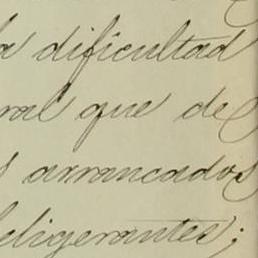 a dificultad
ral que de
s arrancados
eligerantes;